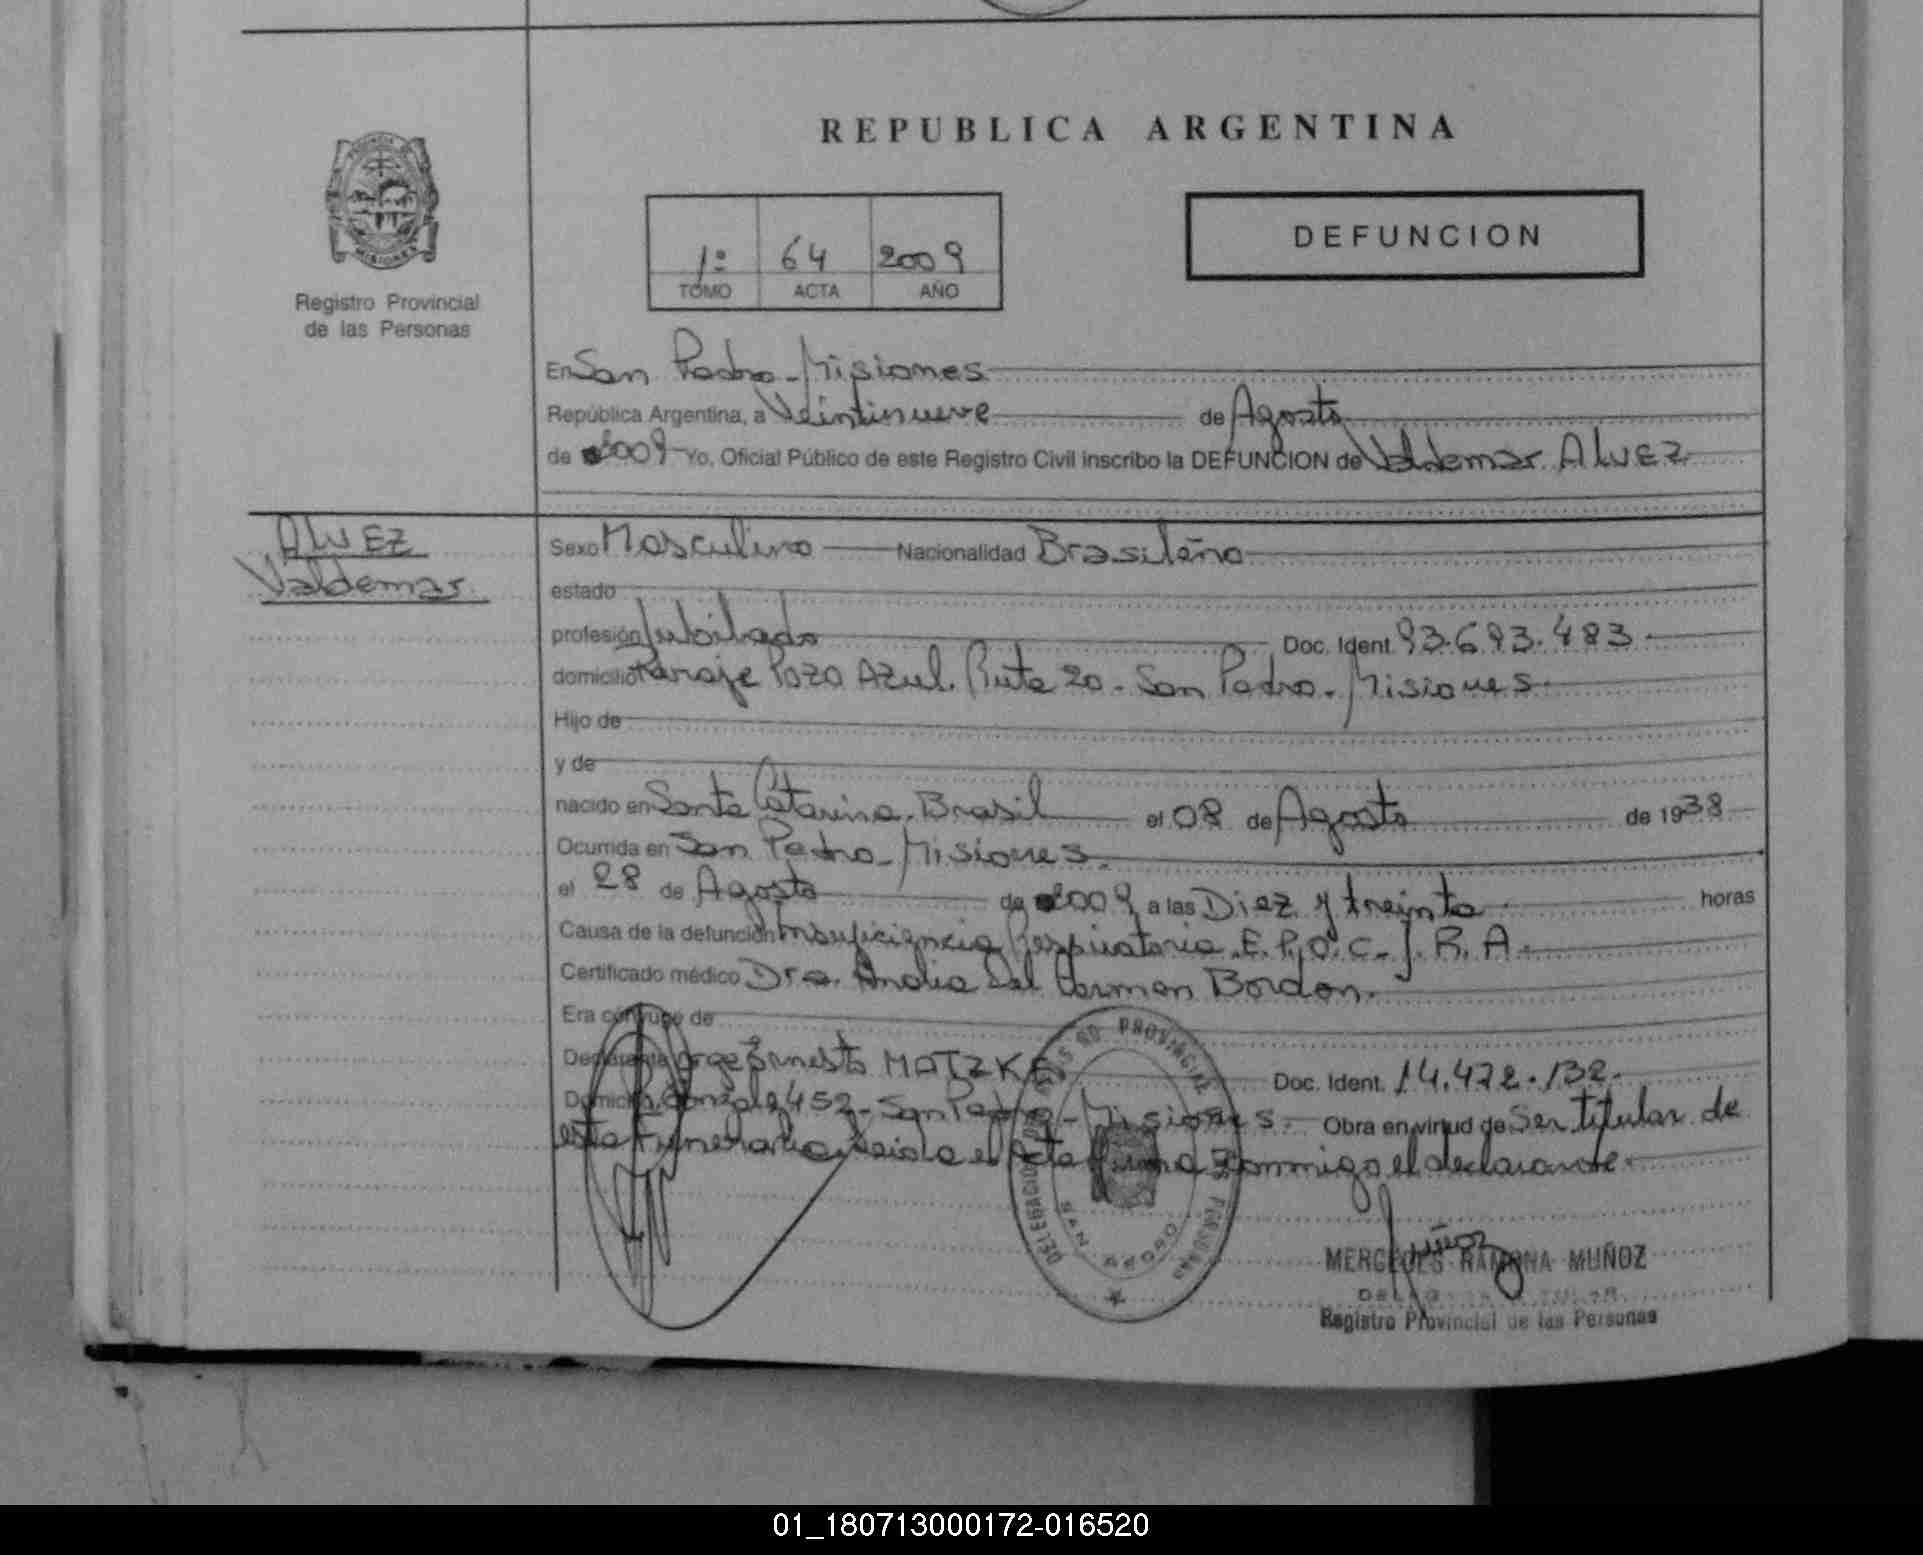 REPUBLICA ARGENTINA
PROVINCIA DE MISIONES
Registro Provincial
de las Personas
1º 64 2009
TOMO ACTA AÑO
DEFUNCION
En San Pedro - Misiones
República Argentina, a Veintinueve de Agosto
de 2009 Yo, Oficial Público de este Registro Civil inscribo la DEFUNCION de Valdemar ALVEZ
ALVEZ
Valdemar
Sexo Masculino Nacionalidad Brasileña
estado
profesión Jubilado Doc. Ident. 93.693.483
domicilio Paraje Pozo Azul. Ruta 20. San Pedro. Misiones
Hijo de
y de
nacido en Santa Catarina. Brasil el 08 de Agosto de 1938
Ocurrida en San Pedro - Misiones.
el 28 de Agosto de 2009 a las Diez y treinta horas
Causa de la defunción Insuficiencia Respiratoria. E.P.O.C. - I.R.A.
Certificado médico Dra. Analia Del Carmen Bordon.
Era cónyuge de
Declarante Jorge Ernesto MATZKE Doc. Ident. 14.472.132.
Domicilio 452 - San Pedro - Misiones. Obra en virtud de Ser titular de
esta Funeraria. Leida el Acta firma conmigo el declarante.
DELEGACION REGISTRO PROVINCIAL DE LAS PERSONAS
SAN PEDRO
Muñoz
MERCEDES RAMONA MUÑOZ
DELEGADA TITULAR
Registro Provincial de las Personas
01_180713000172-016520